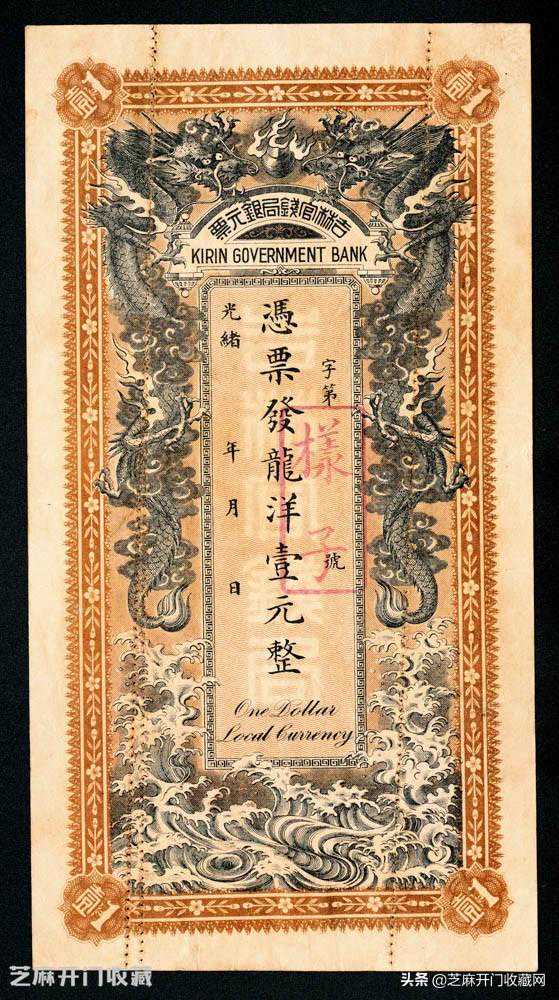 壹1
壹1
吉林官錢局銀元票
KIRIN GOVERNMENT BANK
字第 號
樣子
憑票發龍洋壹元整
光緒 年 月 日
One Dollar
Local Currency
壹1
壹1
芝麻开门收藏
头条 @芝麻开门收藏网